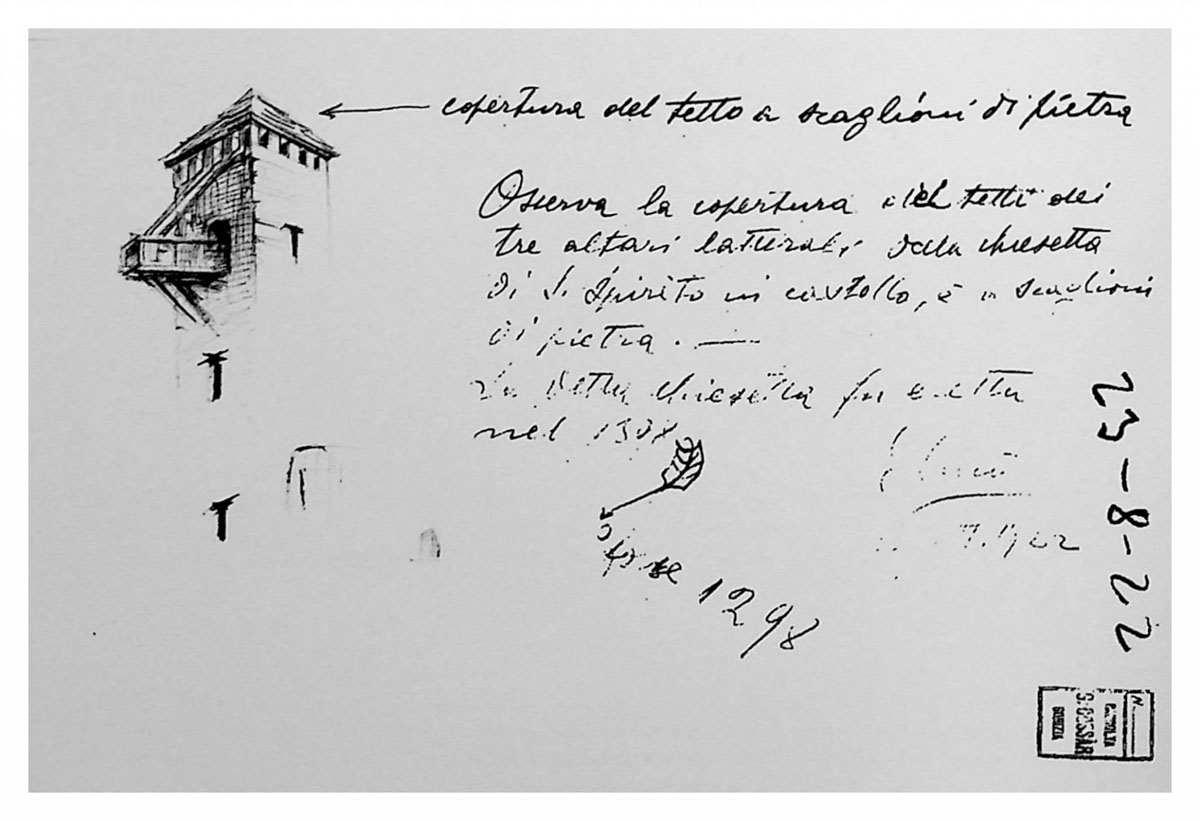 copertura del tetto a scaglioni di pietra
Osserva la copertura dei tetti dei
tre altari laterali della chiesetta
di S. Spirito in castello, è a scaglioni
di pietra. —
La detta chiesetta fu eretta
nel 1398
o forse 1298
1922
23-8-22
N.
RACCOLTA
GORIZIA